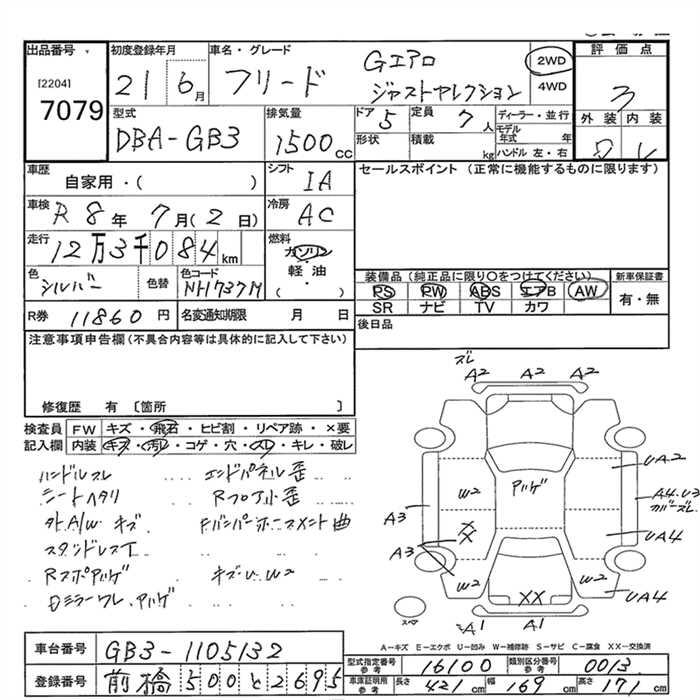 出品番号
[2204]
7079
初度登録年月
21 6月
車名・グレード
フリード
Gエアロ
ジャストセレクション
2WD
4WD
評価点
3
外装 内装
型式
DBA-GB3
排気量
1500cc
ドア 5
形状
定員 7人
積載 kg
ディーラー・並行
モデル年式 年
ハンドル 左・右
車歴
自家用・( )
シフト
IA
セールスポイント (正常に機能するものに限ります)
車検
R8年7月(2日)
冷房
AC
走行
12万3千084km
燃料
ガソリン
軽油
( )
色
シルバー
色替
色コード
NH737M
装備品(純正品に限り○をつけてください)
PS PW ABS エアB AW
SR ナビ TV カワ
新車保証書
有・無
R券 11860円
名変通知期限 月 日
後日品
注意事項申告欄(不具合内容等は具体的に記入して下さい)
修復歴 有 〔箇所 〕
検査員記入欄
FW キズ・飛石・ヒビ割・リペア跡・×要
内装 キズ・汚レ・コゲ・穴・スレ・キレ・破レ
ハンドルスレ エンドパネル歪
シートヘタリ Rフロア小歪
外A/Wキズ Fバンパーホースメント曲
スタンドレス丁
Rスポアハゲ キズU.W2
Dミラーワレ.アハゲ
ズレ
A2 A2 A2
UA2
W2
アハゲ
A4.U3
カバーズレ
A3
XX
UA4
A3
W2
W2
XX
UA4
スペア
A1
A1
A-キズ E-エクボ U-凹み W-補修跡 S-サビ C-腐食 XX-交換済
車台番号 GB3-1105132
登録番号 前橋500と2695
型式指定番号 参考 16100 類別区分番号 参考 0013
車庫証明記載 参考 長さ 421cm 幅 169cm 高さ 171cm